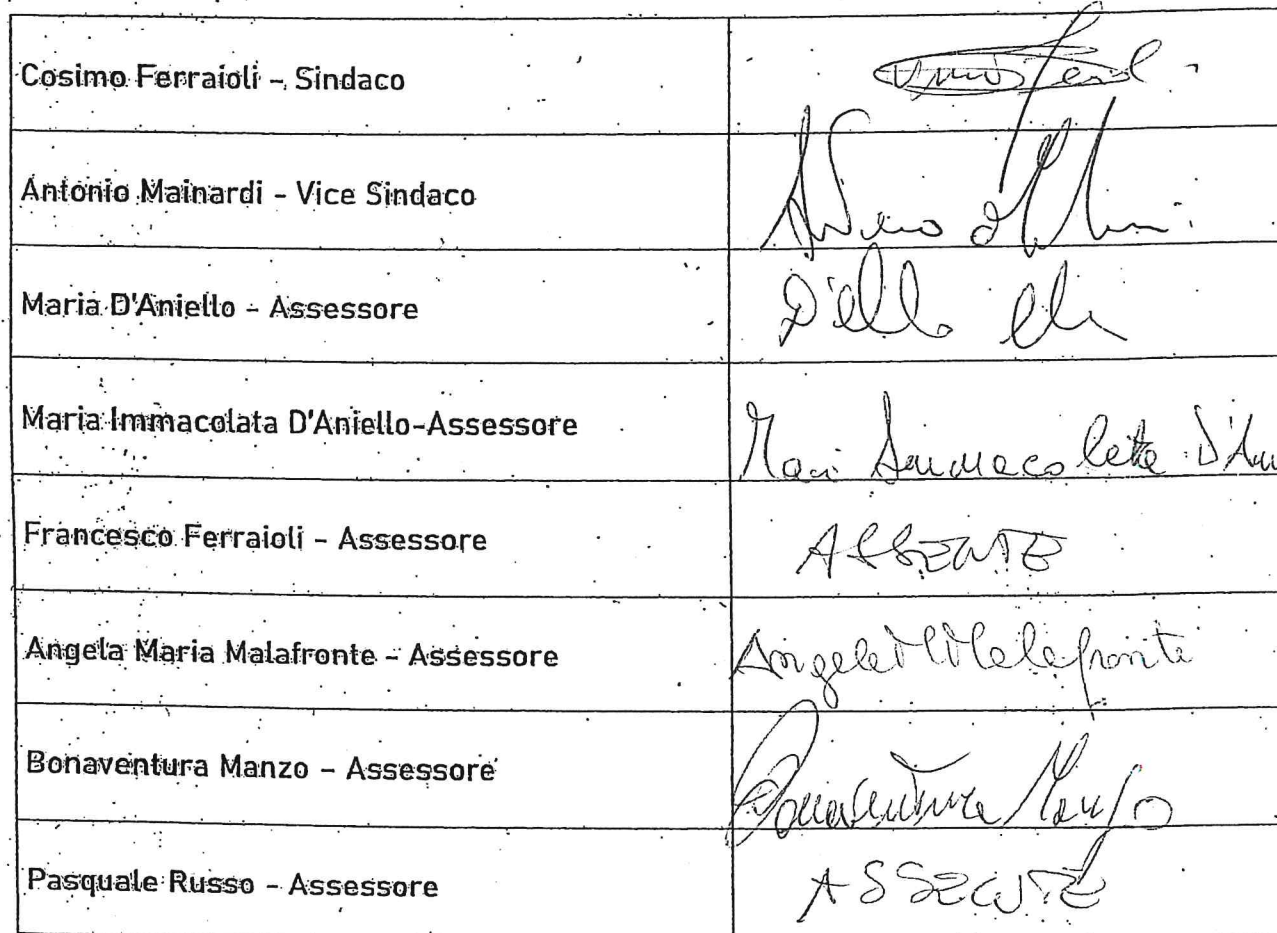 Cosimo Ferraioli - Sindaco
Antonio Mainardi - Vice Sindaco
Maria D'Aniello - Assessore
Maria Immacolata D'Aniello-Assessore
Immacolata D'An
Francesco Ferraioli - Assessore
ASSENTE
Angela Maria Malafronte - Assessore
Angela M Malafronte
Bonaventura Manzo - Assessore
Bonaventura Manzo
Pasquale Russo - Assessore
ASSENTE